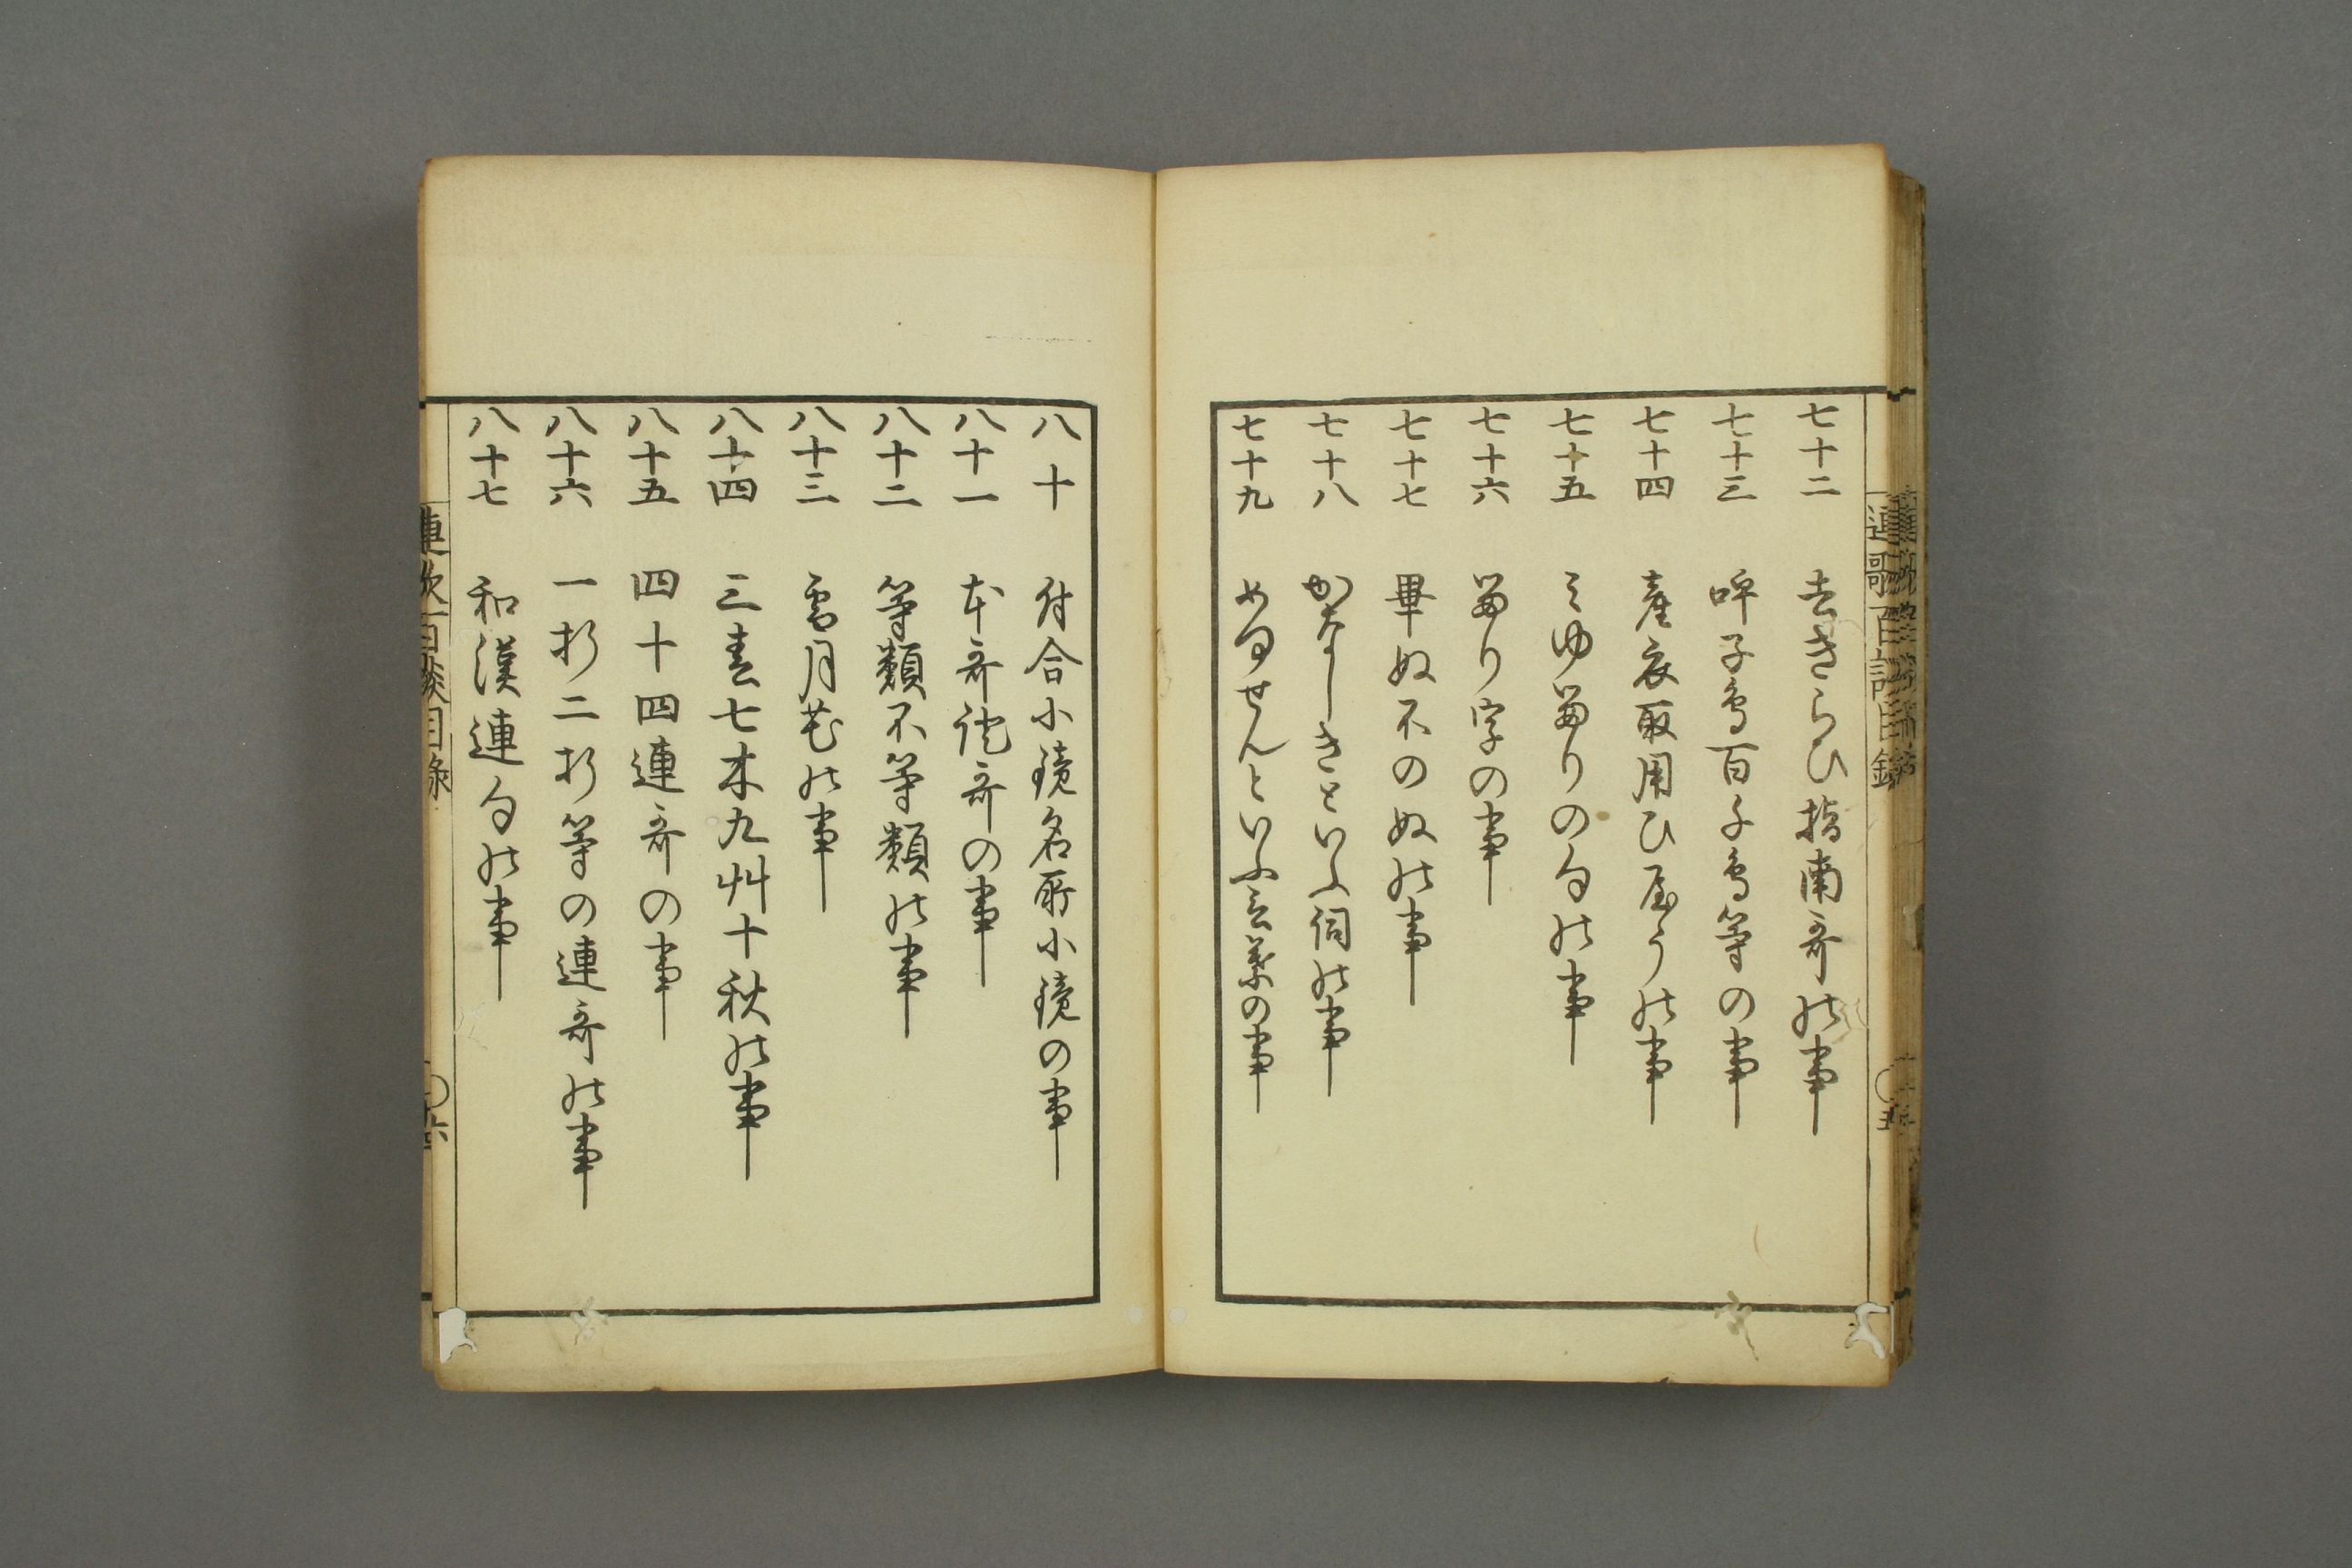 七十二 去きらひ指南哥の事
七十三 呼子鳥百千鳥等の事
七十四 産衣取用ひ屋うの事
七十五 こゆ留りの句の事
七十六 留り字の事
七十七 畢ぬ不のぬの事
七十八 かなしきといふ詞の事
七十九 めりせんといふ言葉の事
八十 付合小鏡名所小鏡の事
八十一 本哥證哥の事
八十二 等類不等類の事
八十三 雪月花の事
八十四 三春七木九艸十秋の事
八十五 四十四連哥の事
八十六 一折二折等の連哥の事
八十七 和漢連句の事
連歌百談目録